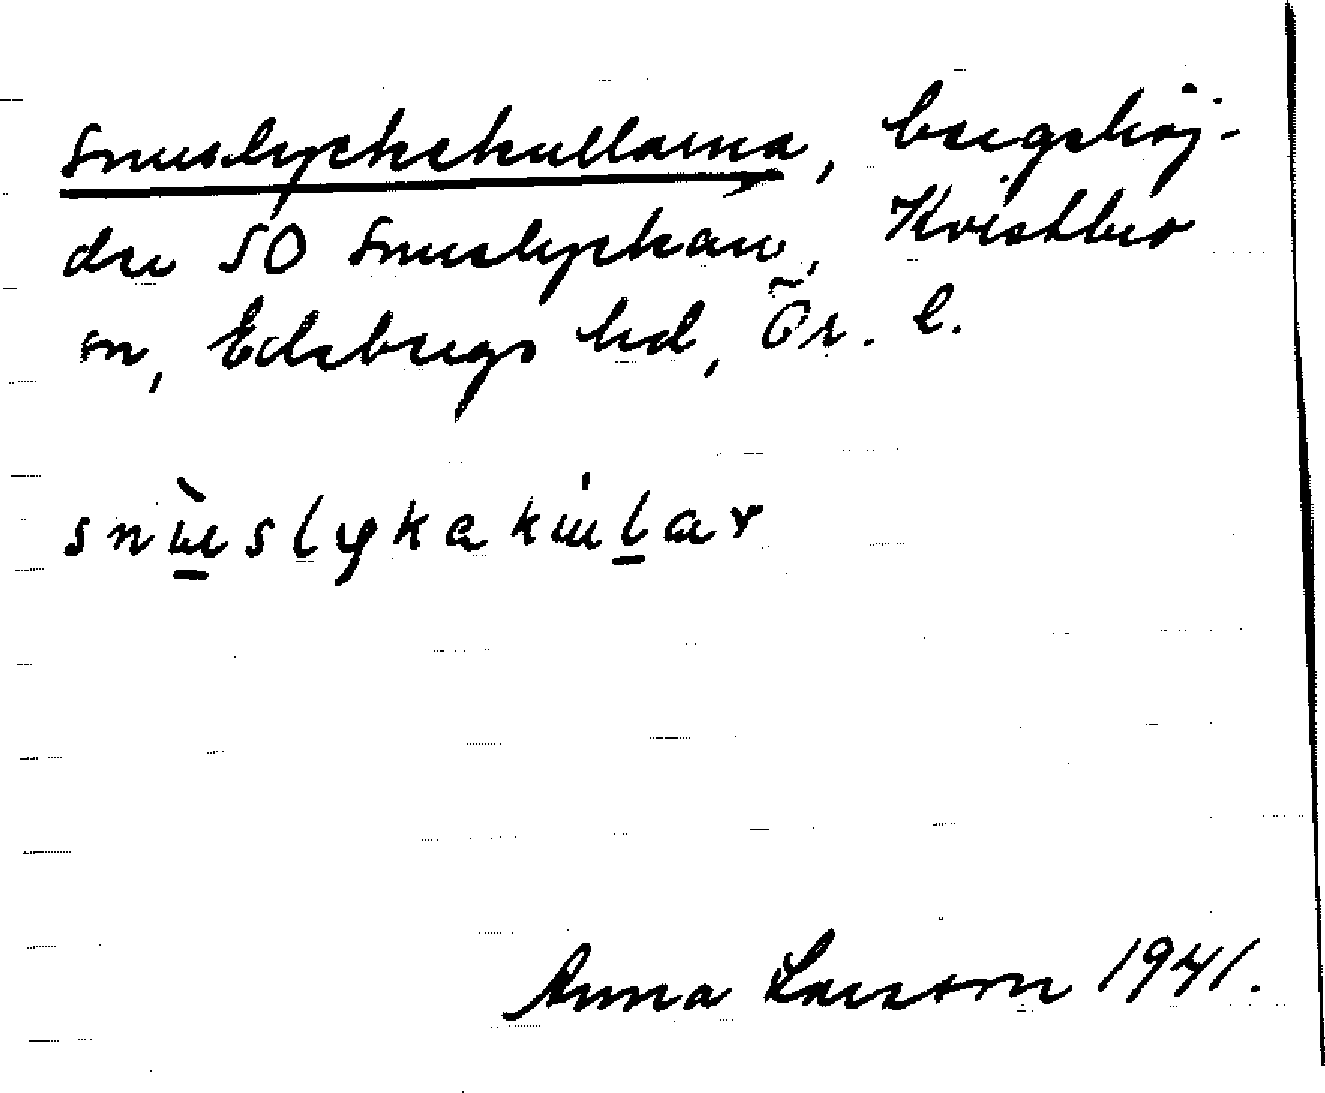 Snuslyckekullarna, bergshöj-
der SO Snuslyckan, Kvistbro
sn, Edsbergs hd, Ör. l.
snù̠slykakul̠ar
Anna Larsson 1941.